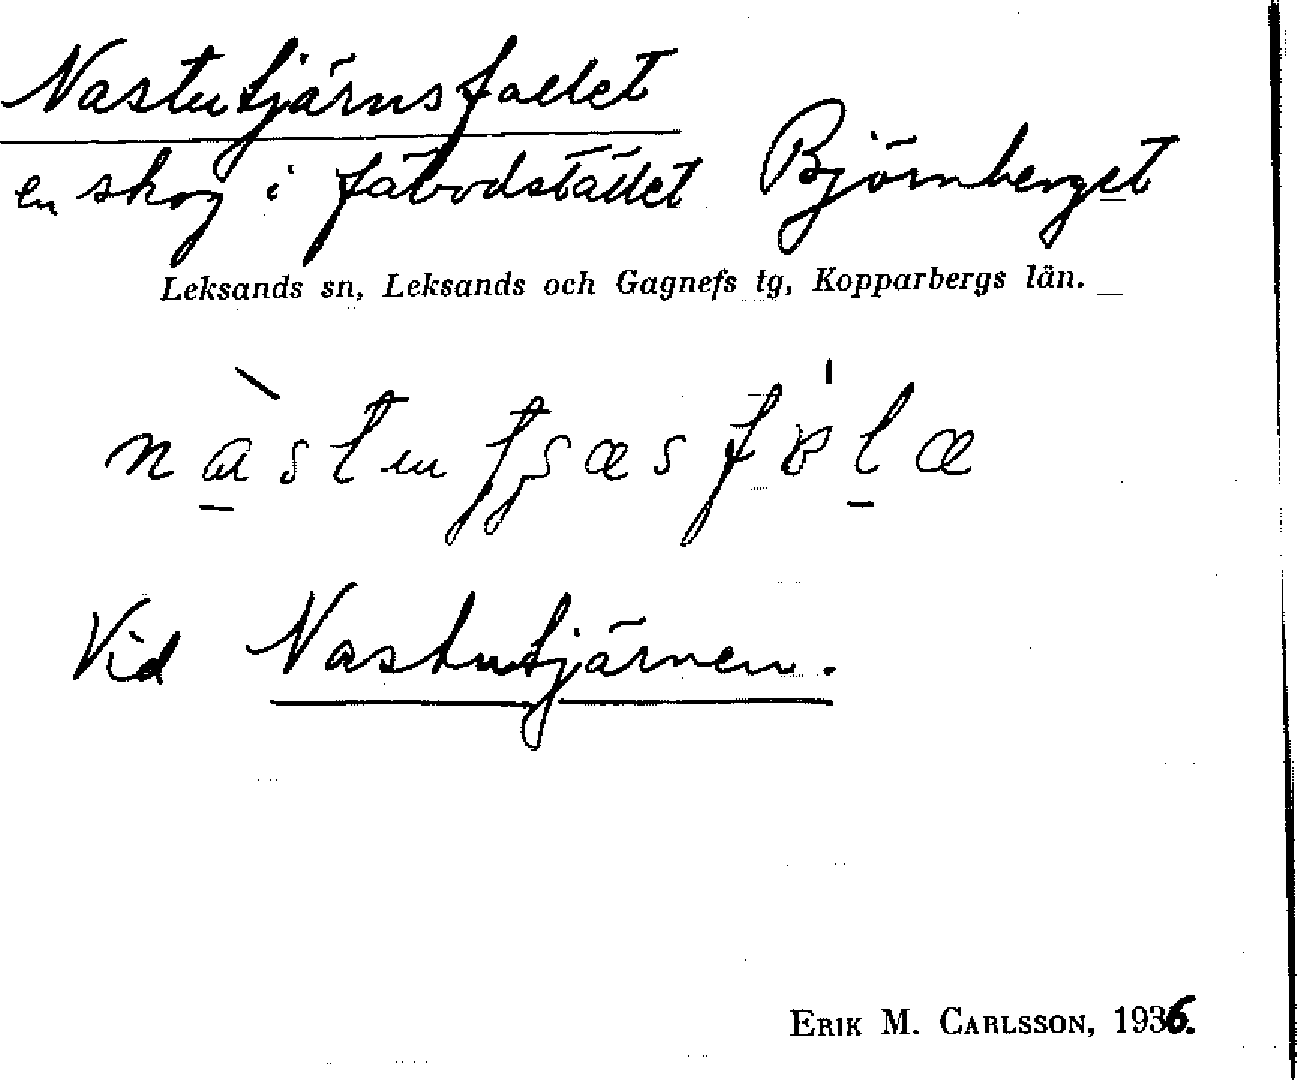 Nastutjärnsfallet
en skog i fäbodstället Björnberget
Leksands sn, Leksands och Gagnefs tg, Kopparbergs län.
Vid Nastutjärnen.
ERIK M. CARLSSON, 1936.